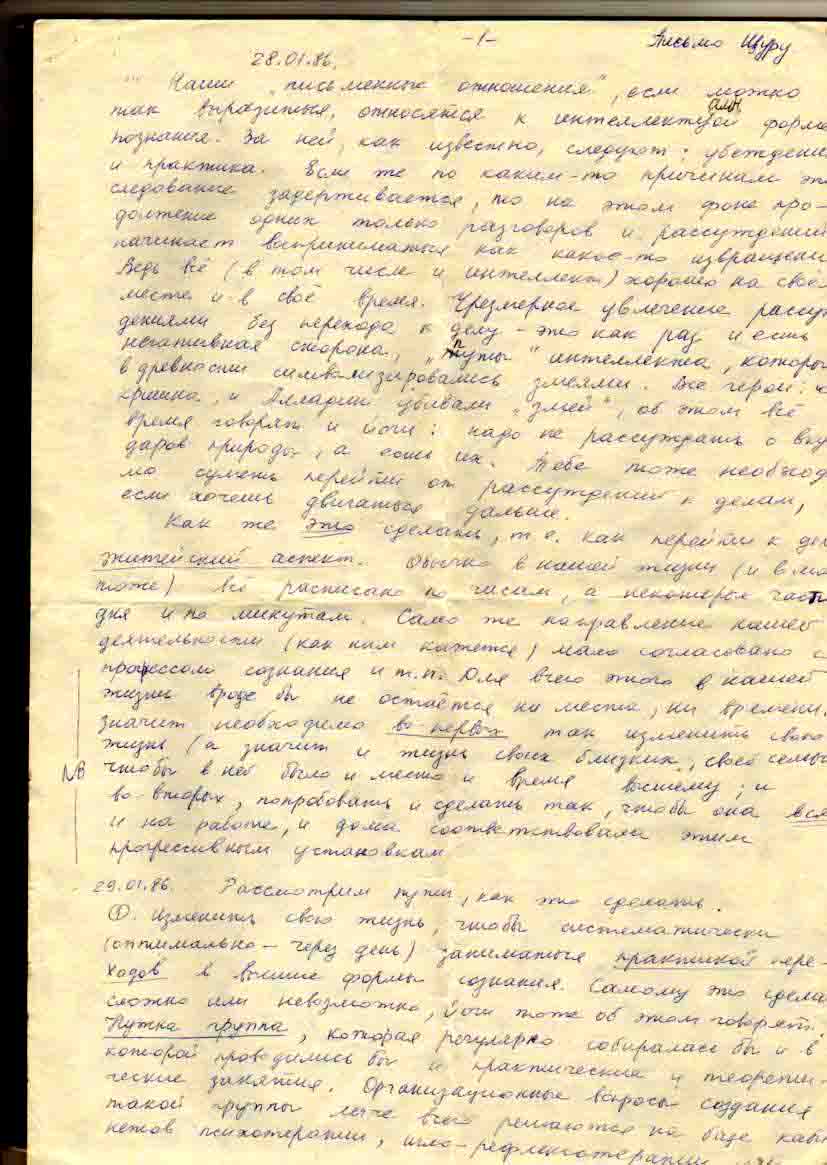 -1-
Письмо Щуру
28.01.86.
Наши „письменные отношения", если можно
так выразиться, относятся к интеллектуальной форме
познания. За ней, как известно, следуют: убеждение
и практика. Если же по каким-то причинам это
следование задерживается, то на этом фоне про-
должение одних только разговоров и рассуждений
начинает восприниматься как какое-то извращение
Ведь всё (в том числе и интеллект) хорошо на своё
месте и в своё время. Чрезмерное увлечение рассуж
дениями без перехода к делу - это как раз и есть
негативная сторона, „путы" интеллекта, которые
в древности символизировались змеями. Все герои:
кришна, и Алладин убивали „змей", об этом всё
время говорят и йоги: надо не рассуждать о вку
даров природы, а есть их. Тебе тоже необход
мо суметь перейти от рассуждений к делам,
если хочешь двигаться дальше.
Как же это сделать, т.е. как перейти к дел
житейский аспект. Обычно в нашей жизни (и в мо
тоже) всё расписано по часам, а некоторые части
дня и по минутам. Само же направление нашей
деятельности (как нам кажется) мало согласовано с
прогрессом сознания и т.п. Для всего этого в нашей
жизни вроде бы не остаётся ни места, ни времени.
значит необходимо во-первых так изменить свою
жизнь (а значит и жизнь своих близких, своей семьи
NB
чтобы в ней было и место и время высшему; и
во-вторых, попробовать и сделать так, чтобы она вся
и на работе, и дома соответствовала этим
прогрессивным установкам
29.01.86. Рассмотрим пути, как это сделать.
①. Изменить свою жизнь, чтобы систематически
(оптимально - через день) заниматься практикой пере-
ходов в высшие формы сознания. Самому это сдела
сложно или невозможно, йоги тоже об этом говорят.
Нужна группа, которая регулярно собиралась бы и в
которой проводились бы и практические и теорети-
ческие занятия. Организационные вопросы создания
такой группы легче всего решаются на базе каби
нетов психотерапии, игло-рефлексотерапии